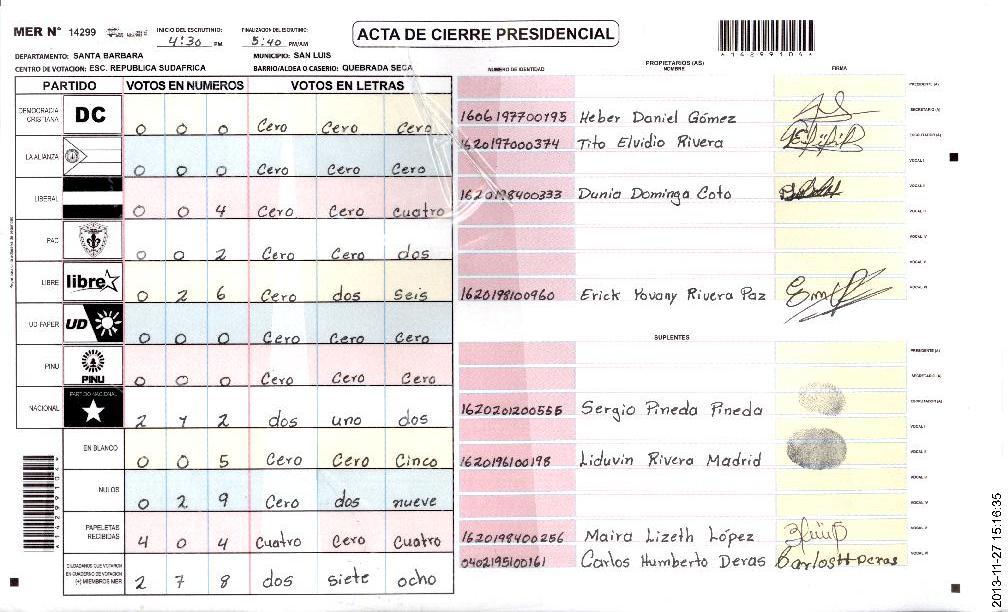 MER N° 14299
INICIO DEL ESCRUTINIO: 4:30 PM
FINALIZACION DEL ESCRUTINIO: 5:40 PM/AM
ACTA DE CIERRE PRESIDENCIAL
A14299104A
DEPARTAMENTO: SANTA BARBARA MUNICIPIO: SAN LUIS
CENTRO DE VOTACION: ESC. REPUBLICA SUDAFRICA BARRIO/ALDEA O CASERIO: QUEBRADA SECA
PARTIDO VOTOS EN NUMEROS VOTOS EN LETRAS
DEMOCRACIA CRISTIANA DC 0 0 0 Cero Cero Cero
LA ALIANZA 0 0 0 Cero Cero Cero
LIBERAL 0 0 4 Cero Cero cuatro
PAC 0 0 2 Cero Cero dos
LIBRE libre 0 2 6 Cero dos seis
UD-FAPER UD 0 0 0 Cero Cero Cero
PINU PINU 0 0 0 Cero Cero Cero
NACIONAL PARTIDO NACIONAL 2 1 2 dos uno dos
EN BLANCO 0 0 5 Cero Cero Cinco
NULOS 0 2 9 Cero dos nueve
PAPELETAS RECIBIDAS 4 0 4 Cuatro Cero Cuatro
CIUDADANOS QUE VOTARON EN CUADERNO DE VOTACION (+) MIEMBROS MER 2 7 8 dos siete ocho
A14299104A
PROPIETARIOS (AS)
NUMERO DE IDENTIDAD NOMBRE FIRMA
PRESIDENTE (A)
1606197700195 Heber Daniel Gómez SECRETARIO (A)
1620197000374 Tito Elvidio Rivera ESCRUTADOR (A)
VOCAL I
1620198400333 Dunia Dominga Coto VOCAL II
VOCAL III
VOCAL IV
VOCAL V
1620198100960 Erick Yovany Rivera Paz VOCAL VI
SUPLENTES
PRESIDENTE (A)
SECRETARIO (A)
1620201200555 Sergio Pineda Pineda ESCRUTADOR (A)
VOCAL I
1620196100198 Liduvin Rivera Madrid VOCAL II
VOCAL III
VOCAL IV
1620198400256 Maira Lizeth López VOCAL V
0402195100161 Carlos Humberto Deras Carlos H Deras VOCAL VI
2013-11-27 15:16:35